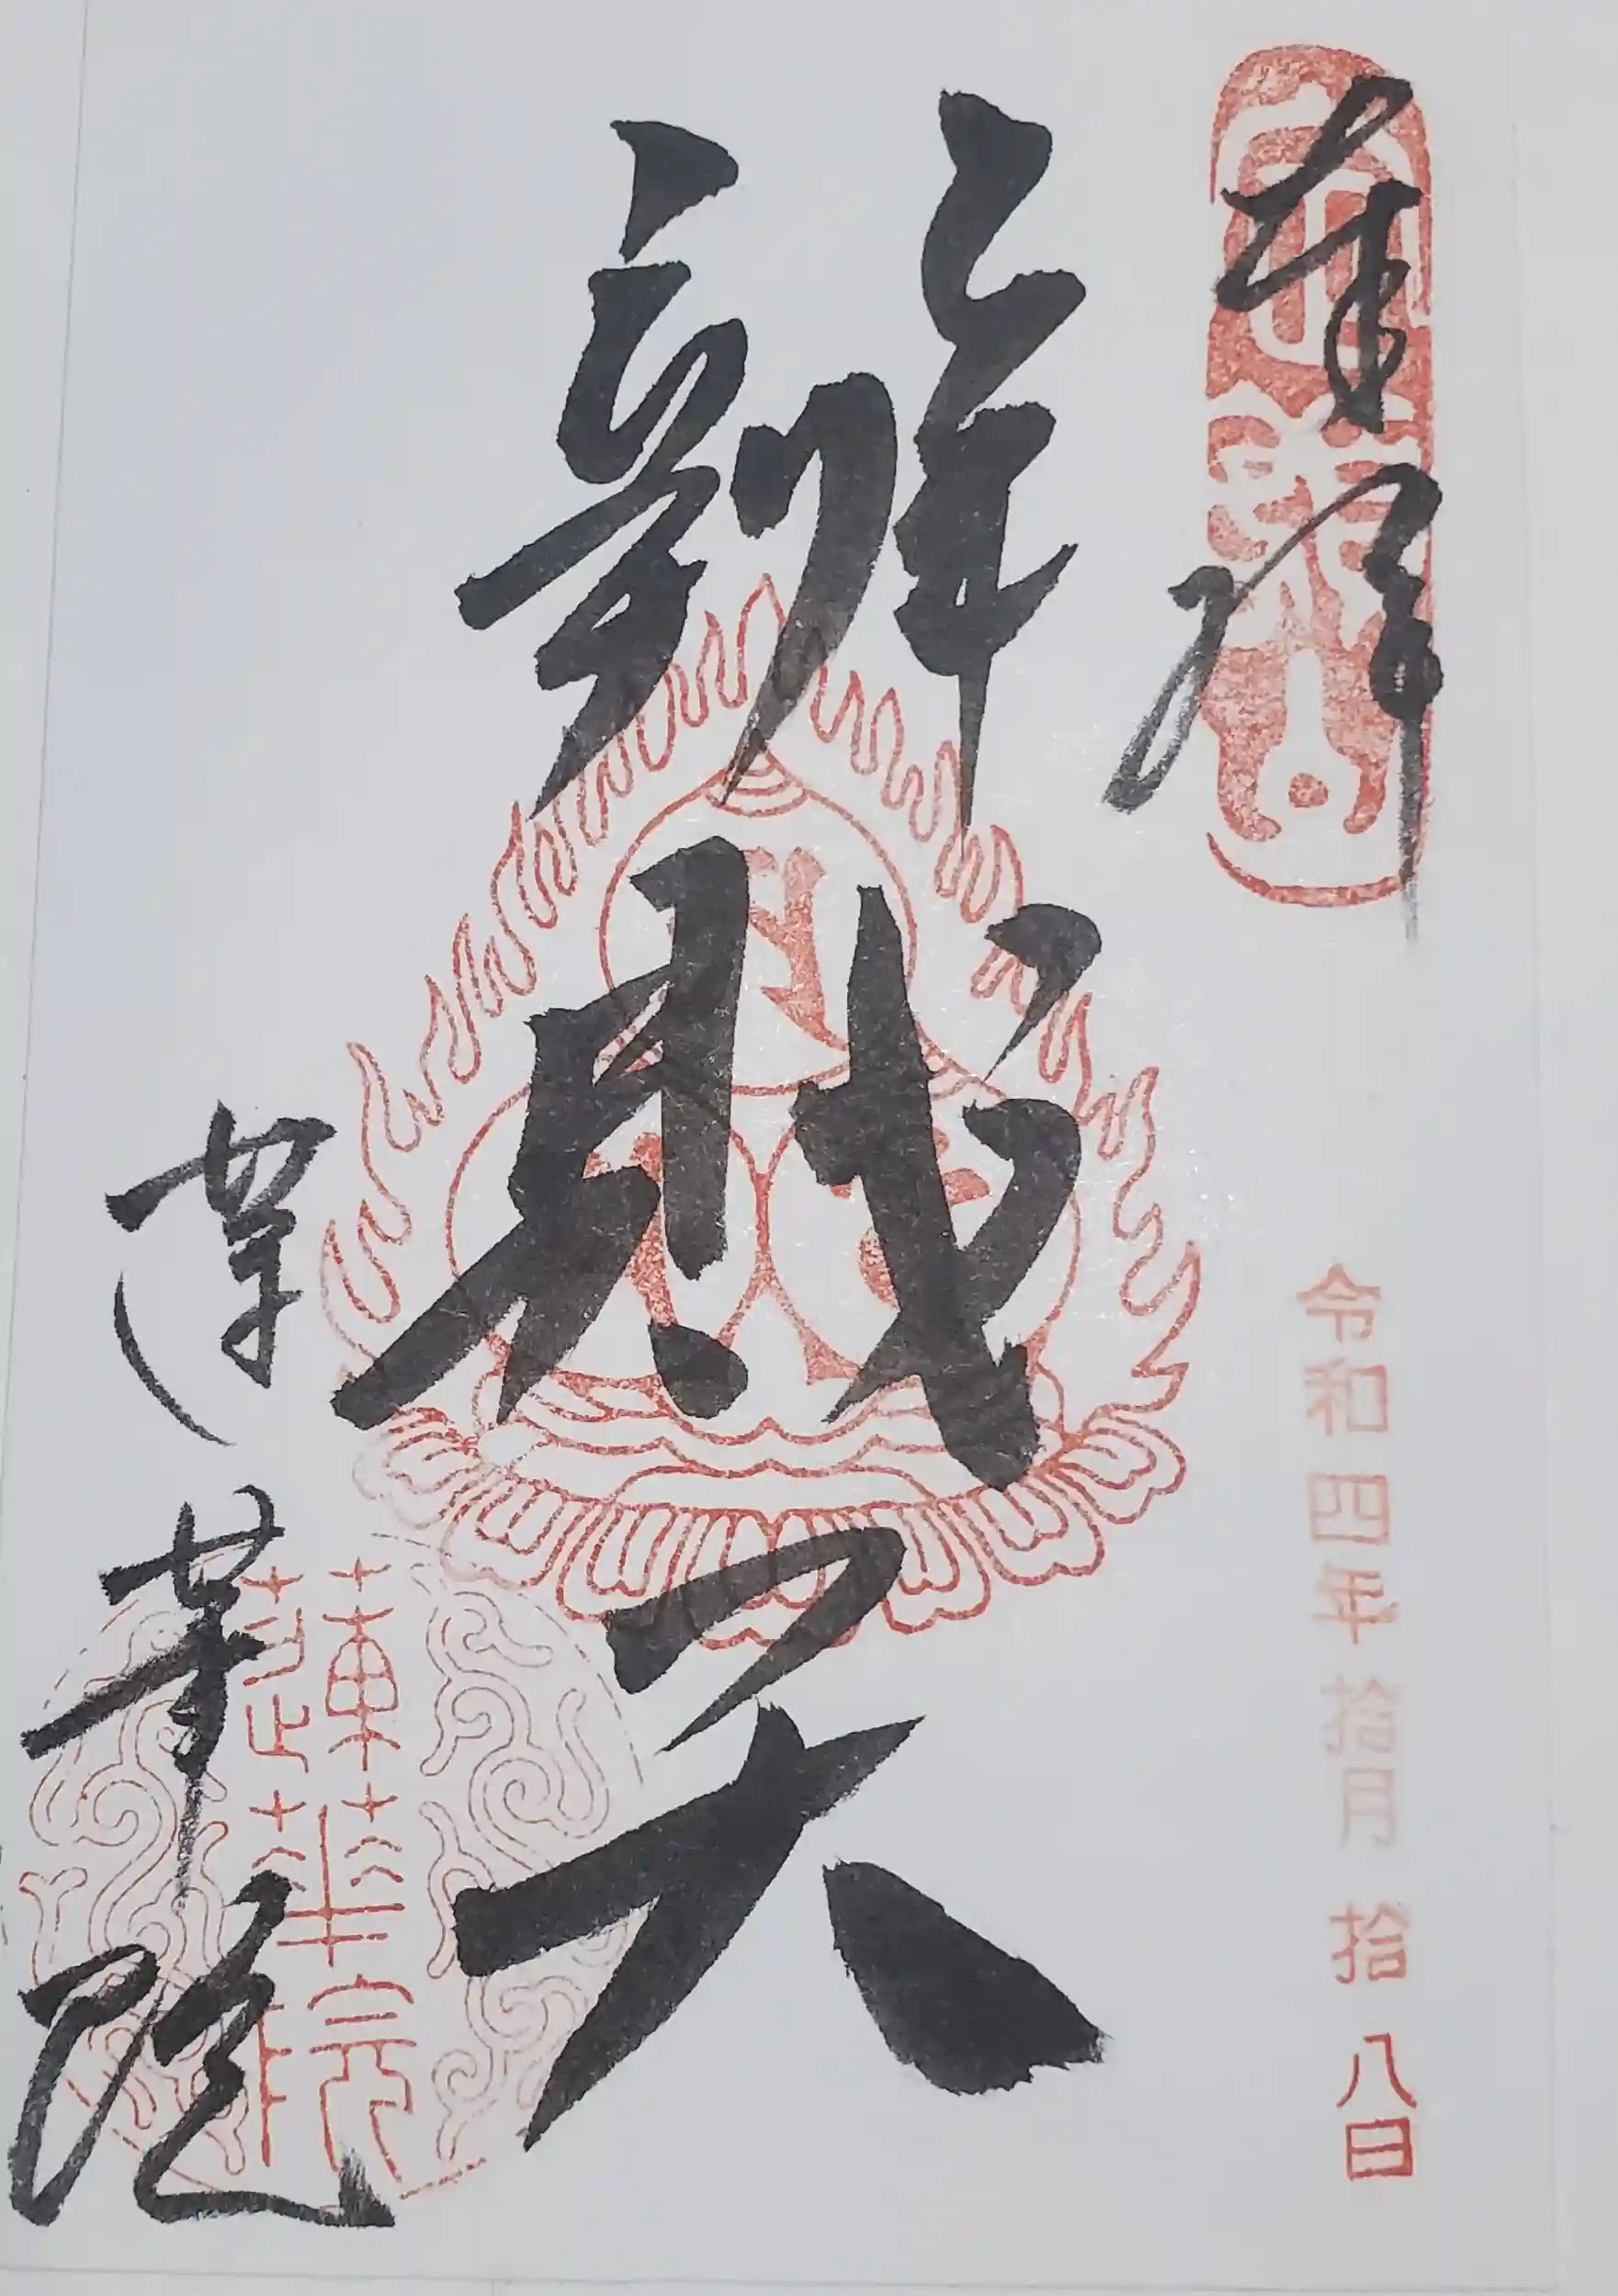 奉拝
令和四年拾月拾八日
辨財天
蓮華院